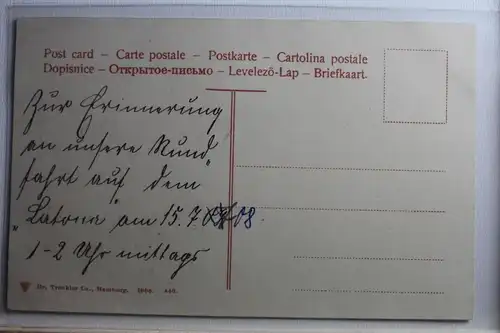 Post card – Carte postale – Postkarte – Cartolina postale
Dopisnice – Открытое-письмо – Levelező-Lap – Briefkaart.
Zur Erinnerung
an unsere Rund„
fahrt auf dem
„Latona" am 15.7 08
1-2 Uhr mittags
Dr. Trenkler Co., Hamburg. 1904. 440.